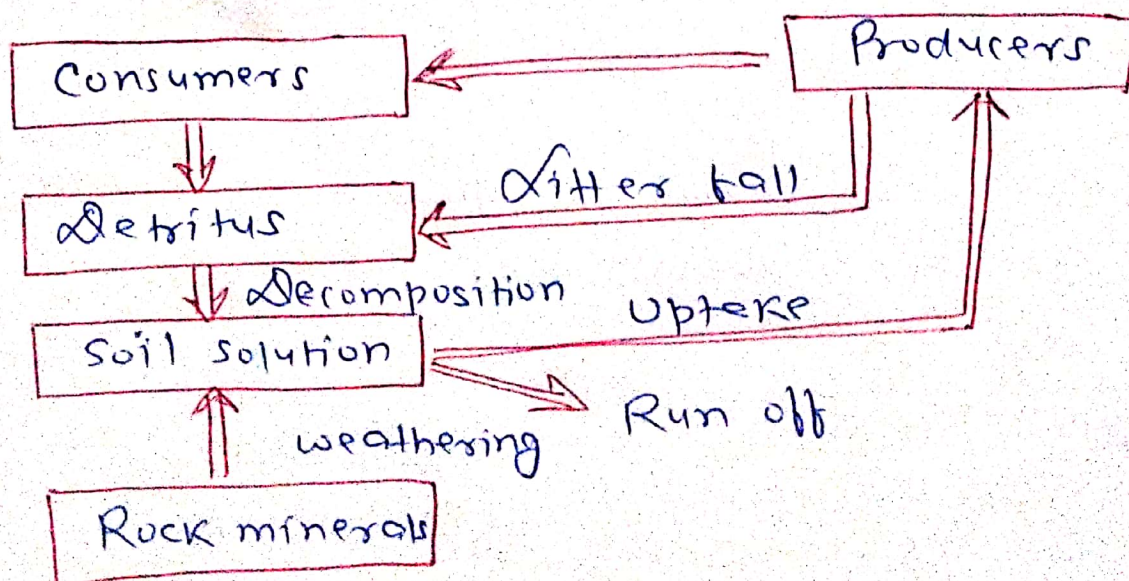 Consumers
Producers
Litter fall
Detritus
Decomposition
Uptake
Soil solution
Run off
weathering
Rock minerals